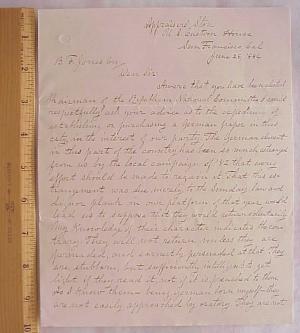 Appraisers Store
U. S. Custom House
San Francisco Cal
June 25, 1884
B. F. Jones Esq
Dear Sir
Aware that you have been elected
Chairman of the Republican National Committee I would
respectfully ask your advice as to the expediency of
establishing or purchasing a German paper in this
city in the interest of our party. The German element
in this part of the country has been so much estranged
from us by the local campaign of '82 that every
effort should be made to regain it. That this es-
trangement was due merely to the Sunday law and
liquor plank in our platform of that year would
lead us to suppose that they would return voluntarily
My Knowledge of their character indicates the con-
trary. They will not return unless they are
persuaded, and earnestly persuaded at that. They
are stubborn, but sufficiently intelligent to get
light if they read it, not if it is preached to them
As I know them being German born myself they
are not easily approached by oratory. They are not